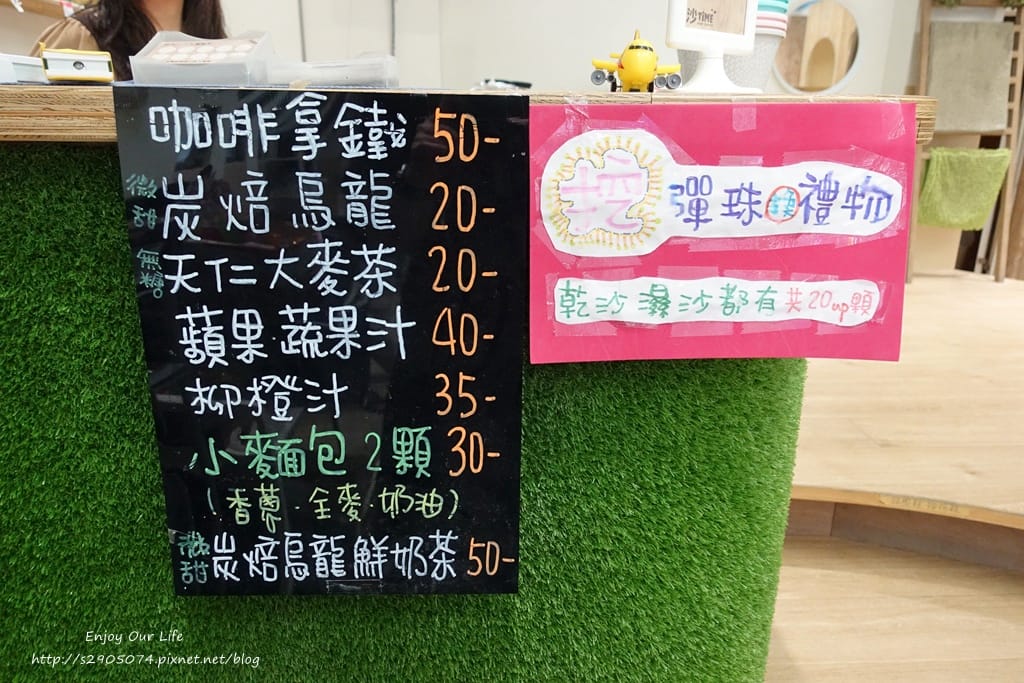 沙TIME
咖啡拿鐵 50-
微甜 炭焙烏龍 20-
無糖 天仁大麥茶 20-
蘋果蔬果汁 40-
柳橙汁 35-
小麵包2顆 30-
(香蔥·全麥·奶油)
微甜 炭焙烏龍鮮奶茶 50-
挖彈珠換禮物
乾沙濕沙都有共20up顆
Enjoy Our Life
http://s2905074.pixnet.net/blog